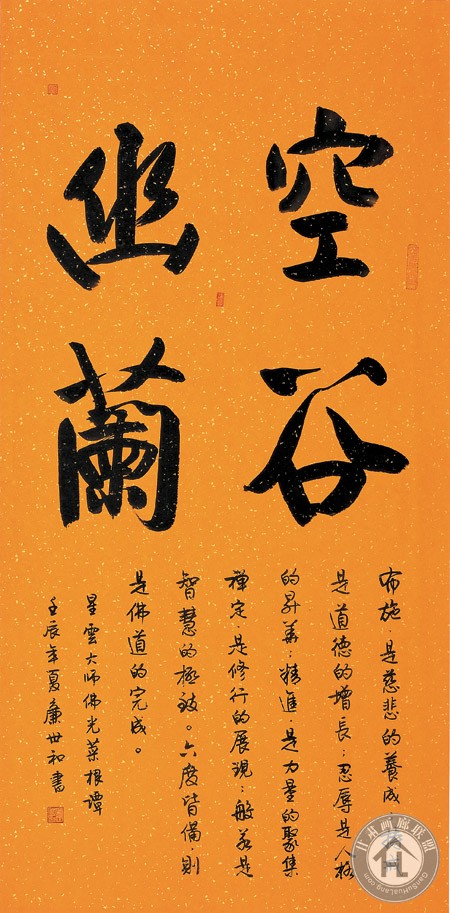 空谷
幽蘭
布施·是慈悲的養成
是道德的增長;忍辱是人格
的昇華;精進·是力量的聚集
禪定·是修行的展現;般若是
智慧的極致。六度皆備·則
是佛道的完成。
星雲大師佛光菜根譚
壬辰年夏廉世和書
甘肃画廊联盟
GanSuHuaLang.com